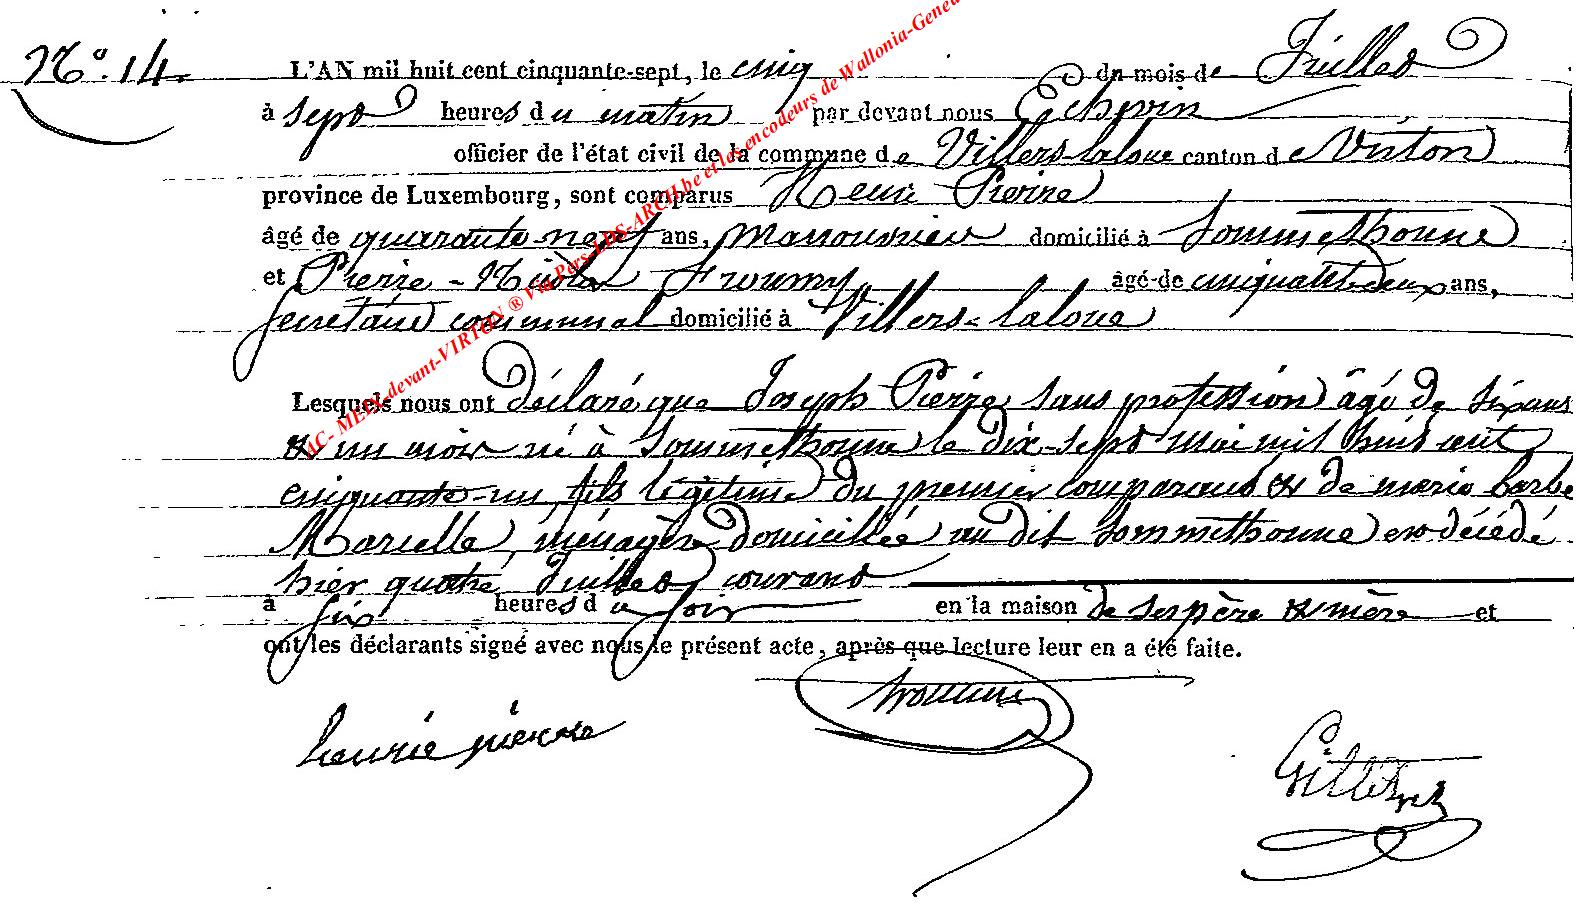 N°. 14.
L'AN mil huit cent cinquante-sept, le cinq du mois de Juillet
à sept heures du matin par devant nous Echevin
officier de l'état civil de la commune de Villers-laloue canton de Virton
province de Luxembourg, sont comparus Henri Pierre
âgé de quarante-neuf ans, manouvrier domicilié à Sommethonne
et Pierre-Nicolas Froumy âgé de cinquante deux ans,
secrétaire communal domicilié à Villers-laloue
Lesquels nous ont déclaré que Joseph Pierre sans profession âgé de six ans
& un mois né à Sommethonne le dix-sept mai mil huit cent
cinquante-un, fils légitime du premier comparant & de marie barbe
Marcelle, ménagère domiciliée au dit Sommethonne est décédé
hier quatre Juillet courant
à six heures du soir en la maison de ses père & mère et
ont les déclarants signé avec nous le présent acte, après que lecture leur en a été faite.
henrie pierre
froumy
AC- MEIX-devant-VIRTON ® Via Pers-LDS-ARCH.be et les encodeurs de Wallonia-Genea